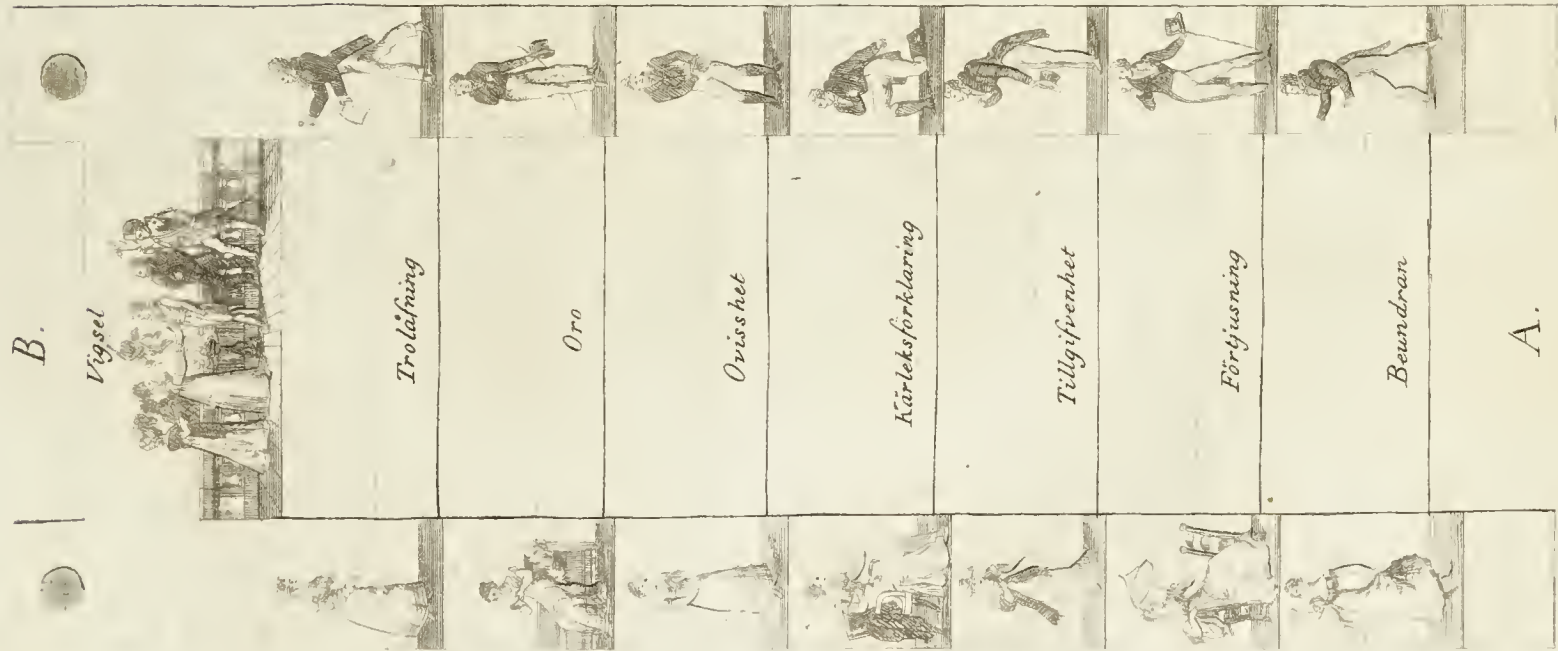 B.
Vigsel
Trolåfning
Oro
Ovisshet
Kärleksförklaring
Tillgifvenhet
Förtjusning
Beundran
A.